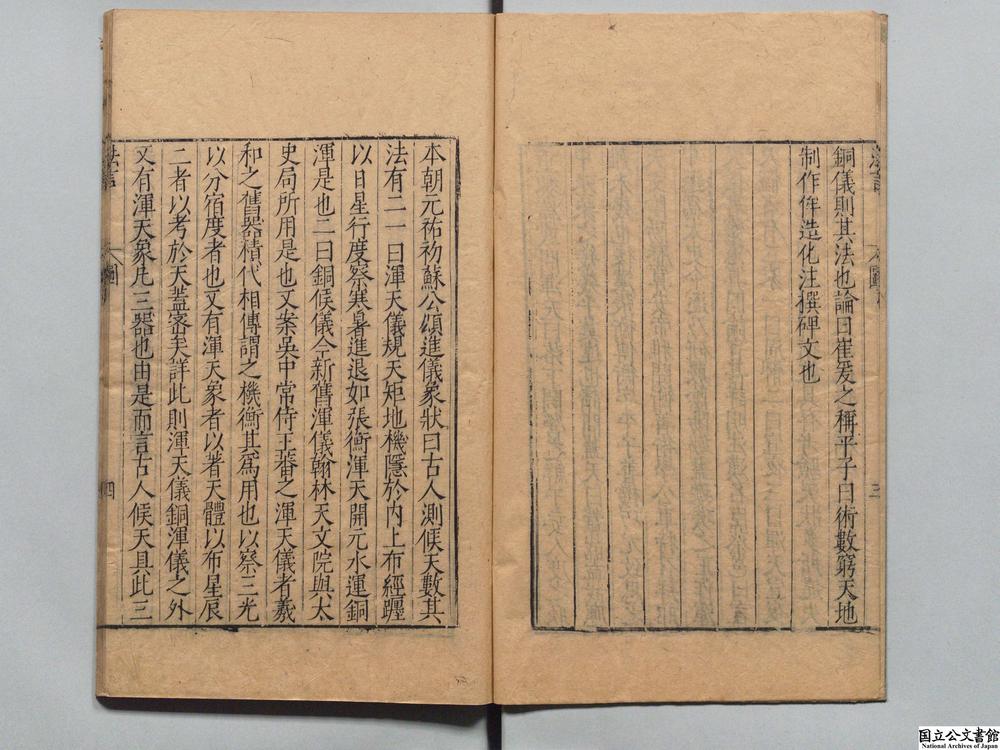 銅儀則其法也論曰崔爰之稱平子曰術數窮天地
制作侔造化注撰碑文也
三
本朝元祐初蘇公頌進儀象狀曰古人測候天數其
法有二一曰渾天儀規天矩地機隱於內上布經躔
以日星行度察寒暑進退如張衡渾天開元水運銅
渾是也二曰銅候儀今新舊渾儀翰林天文院與太
史局所用是也又案吳中常侍王蕃之渾天儀者羲
和之舊器積代相傳謂之機衡其爲用也以察三光
以分宿度者也又有渾天象者以著天體以布星辰
二者以考於天蓋密矣詳此則渾天儀銅渾儀之外
又有渾天象凡三器也由是而言古人候天具此三
四
国立公文書館
National Archives of Japan